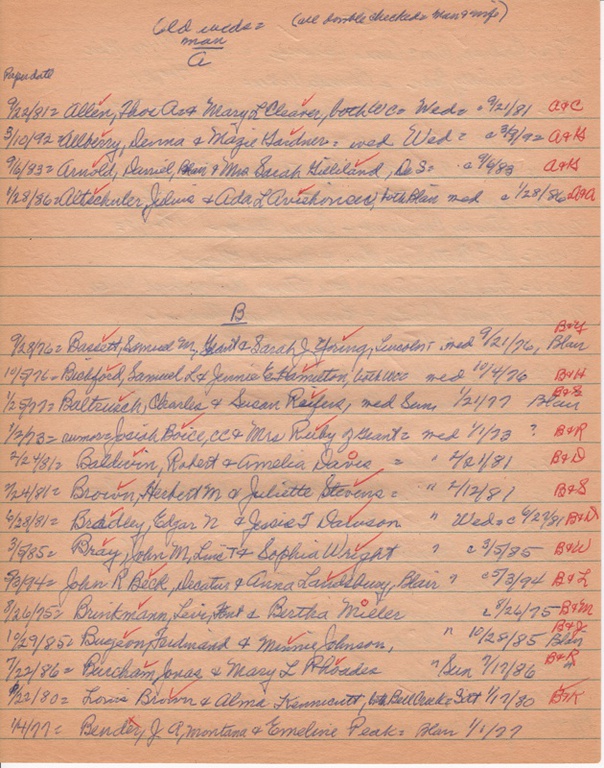 Old weds = (all double checked = man & wife)
man
A
Paper date
9/22/81 = Allen, Thos A. & Mary L Cleaver, both WC = Wed = 9/21/81 A&C
3/10/92 = Allberry, Denna & Magie Gardner = wed Wed = c 3/9/92 A&G
9/6/83 = Arnold, Daniel, Blair & Mrs Sarah Gilliland, De S = c 9/6/83 A&G
1/28/86 = Altschuler, Julius & Ada L, both Blair wed c 1/28/86 = A&A
B
9/28/76 = Bassett, Samuel M, Grant & Sarah J Young, Lincoln T, wed 9/21/76, Blair B&Y
10/5/76 = Bickford, Samuel L & Jennie E Hamilton, both WC wed 10/4/76 B&H
1/25/77 = Baltrusch, Charles & Susan, wed Sun 1/21/77 Blair
1/2/73 = rumor = Josiah Boice, CC & Mrs Ruby of Grant = wed 1/1/73 ? B&R
2/24/81 = Baldwin, Robert & Amelia Davis = " 2/21/81 B&D
2/24/81 = Brown, Herbert M & Juliette Stevens = " 2/12/81 B&S
4/28/81 = Bradley, Edgar N & Jessie T Dawson " Wed = c 4/27/81 B&D
3/5/85 = Bray, John M, Linc T & Sophia Wright " c 3/5/85 B&W
5/3/94 = John R Beck, Decatur & Anna Laudesbury, Blair " c 5/3/94 B&L
8/26/75 = Brinkmann, Levi, Font & Bertha Mieler c 8/26/75 B&M
10/29/85 = Burgeson, Ferdinand & Minnie Johnson, " 10/28/85 Blair B&J
7/22/86 = Burcham, Jonas & Mary L Rhoades " Sun 7/17/86 " B&R
1/22/80 = Louis Brown & Alma Kennicutt, both Bell Creek = Sat 1/17/80 B&K
1/4/77 = Bender, J A, Montana & Emeline Peak = Blair 1/1/77